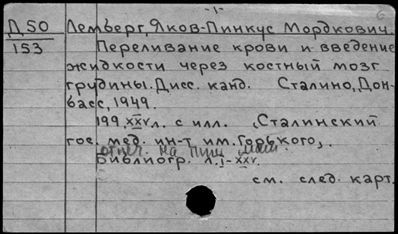 -1-
6
Д 50 Лемберг, Яков-Пинкус Мордкович.
153 Переливание крови и введение
жидкости через костный мозг
грудины. Дисс. канд. Сталино, Дон-
басс, 1949.
199, xxv л. с илл. (Сталинский
гос. мед. ин-т им. Горького).
отпеч. на пиш. маш.
Библиогр. л. I-XXV.
см. след. карт.